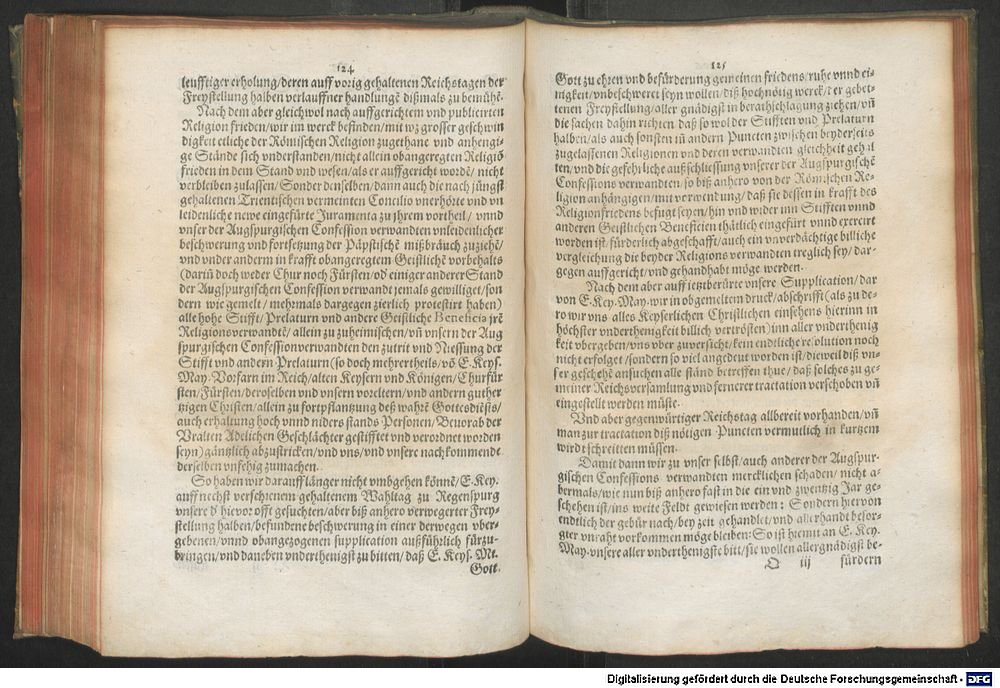 124
leufftiger erholung/deren auff vorig gehaltenen Reichstagen der
Freystellung halben verlauffner handlungē dißmals zu bemühē.
Nach dem aber gleichwol nach auffgerichtem vnd publicirten
Religion frieden/wir im werck befinden/mit wz grosser geschwin
digkeit etliche der Römischen Religion zugethane vnd anhengi-
ge Stände sich vnderstanden/nicht allein obangeregten Religiō
frieden in dem Stand vnd wesen/als er auffgericht wordē/ nicht
verbleiben zulassen/Sonder denselben/dann auch die nach jüngst
gehaltenen Trientischen vermeinten Concilio vnerhörte vnd vn
leidenliche newe eingefürte Juramenta zu jhrem vortheil/ vnnd
vnser der Augspurgischen Confession verwandten vnleidenlicher
beschwerung vnd fortsetzung der Päpstischē mißbräuch zuziehē/
vnd vnder andern in krafft obangeregtem Geistlichē vorbehalts
(dariñ doch weder Chur noch Fürsten/od' einiger anderer Stand
der Augspurgischen Confession verwandt jemals gewilliget/son
dern wie gemelt/ mehrmals dargegen zierlich protestirt haben)
alle hohe Stifft/Prelaturn vnd andere Geistliche Beneficia jrē
Religionsverwandtē/ allein zu zuheimischen/vñ vnsern der Aug
spurgischen Confessionverwandten den zutrit vnd Niessung der
Stifft vnd andern Prelaturn (so doch mehrertheils/vō E. Keys.
May. Vorfarn im Reich/alten Keysern vnd Königen/Churfür
sten/Fürsten/deroselben vnd vnsern voreltern/vnd andern guther
tzigen Christen/allein zu fortpflantzung deß wahrē Gottesdiēsts/
auch erhaltung hoch vnnd niders stands Personen/Beuorab der
Vralten Adelichen Geschlächter gestifftet vnd verordnet worden
seyn) gäntzlich abzustricken/vnd vns/vnd vnsere nachkommende
derselben vnfehig zumachen.
So haben wir darauff länger nicht vmbgehen könnē/E. Key.
auff nechst verschienem gehaltenem Wahltag zu Regenspurg
vnsere d' hievor offt gesuchten/aber biß anhero verwegerter Frey-
stellung halben/befundene beschwerung in einer derwegen vber-
gebenen/vnnd obangezogenen supplication außführlich fürzu-
bringen/vnd daneben vnderthenigst zu bitten/daß E. Keys. Mt.
Gott.
125
Gott zu ehren vnd befürderung gemeinen friedens/ruhe vnnd ei-
nigkeit/vnbeschweret seyn wollen/diß hochnötig werck/der gebet-
tenen Freystellung/aller gnädigst in berathschlagung ziehen/vñ
die sachen dahin richten daß so wol der Stifften vnd Prelaturn
halben/als auch sonsten iñ andern Puncten zwischen beyderseits
zugelassenen Religionen vnd deren verwandten gleichheit gehal
ten/vnd die gefehrliche außschliessung vnserer der Augspurgischē
Confessions verwandten/so biß anhero von der Römischen Re-
ligion anhängigen/mit vorwendung/daß sie dessen in krafft des
Religionfriedens befugt seyen/hin vnd wider inn Stifften vnnd
anderen Geistlichen Beneficien thätlich eingefürt vnnd exercirt
worden ist/fürderlich abgeschafft/auch ein vnverdächtige billiche
vergleichung die beyder Religions verwandten treglich sey/ dar-
gegen auffgericht/vnd gehandhabt möge werden.
Nach dem aber auff ietztberürte vnsere Supplication/ dar
von E. Key. May. wir in obgemeltem druck/abschrifft (als zu de-
ro wir vns alles Keyserlichen Christlichen einsehens hierinn in
höchster vnderthenigkeit billich vertrösten) inn aller vnderthenig
keit vbergeben/vns vber zuversicht/kein endtliche resolution noch
nicht erfolget/sondern so viel angedeut worden ist/dieweil diß vn-
ser geschehē ansuchen alle ständ betreffen thue/ daß solches zu ge-
meiner Reichsversamlung vnd fernerer tractation verschoben vñ
eingestellt werden müste.
Vnd aber gegenwürtiger Reichstag allbereit vorhanden/vñ
man zur tractation diß nötigen Puncten vermutlich in kurtzem
wirdt schreitten müssen.
Damit dann wir zu vnser selbst/auch anderer der Augspur-
gischen Confessions verwandten mercklichen schaden/ nicht a-
bermals/wie nun biß anhero fast in die ein vnd zwentzig Jar ge-
schehen ist/ins weite Feldt gewiesen werden: Sondern hiervon
endtlich der gebür nach/bey zeit gehandlet/vnd allerhandt besor-
gter vnraht vorkommen möge bleiben: So ist hiemit an E. Key.
May. vnsere aller vnderthenigste bitt/sie wollen allergnädigst be-
Q iij fürdern
Digitalisierung gefördert durch die Deutsche Forschungsgemeinschaft - DFG